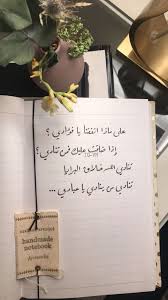 على ماذا اتفقنا يا فؤادي؟
إذا ضاقت عليك فمن تنادي؟
تنادي الله خلاق البرايا
تنادي من ينادي يا عبادي ...
handmade
notebook